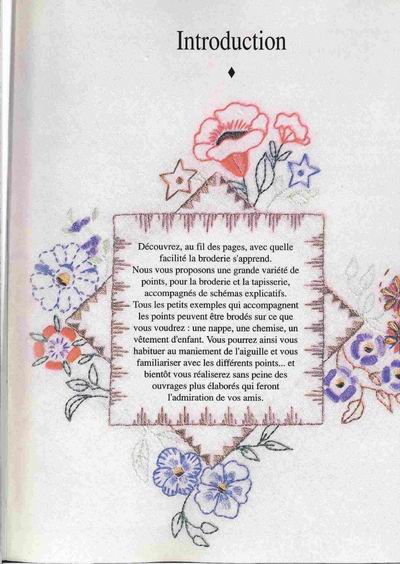 Introduction
Découvrez, au fil des pages, avec quelle
facilité la broderie s'apprend.
Nous vous proposons une grande variété de
points, pour la broderie et la tapisserie,
accompagnés de schémas explicatifs.
Tous les petits exemples qui accompagnent
les points peuvent être brodés sur ce que
vous voudrez : une nappe, une chemise, un
vêtement d'enfant. Vous pourrez ainsi vous
habituer au maniement de l'aiguille et vous
familiariser avec les différents points... et
bientôt vous réaliserez sans peine des
ouvrages plus élaborés qui feront
l'admiration de vos amis.